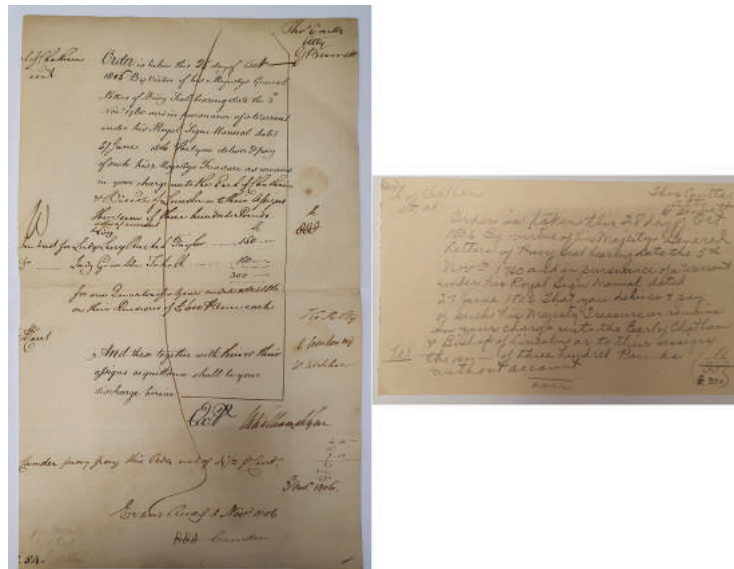 Thos Coutts
Order is taken this 28 day of Oct
1806 By Virtue of his Majestys General
Letters of Privy Seal bearing date the 5th
Novr 1760 and in pursuance of a Warrant
under his Royal Sign Manual dated
27 June 1806 That you deliver & pay
of such his Majestys Treasure as remains
in your charge unto the Earl of Chatham
& Bishop of Lincoln or to their Assigns
the sum of three hundred Pounds
without account
Lady Lucy Rachel Taylor 150
Lady Griselda Tekell 150
300
for one Quarter of a year
on their Pensions of £600 each
And these together with his or their
assigns acquittance shall be your
discharge herein
Camden pray pay this Order out of 4½ p Cent.
3 Novr 1806.
Exam 3 Novr 1806
Camden
Chatham
et al
Thos Coutts
Orders is taken this 28 day Oct
1806 By virtue of his Majestys General
Letters of Privy Seal bearing date the 5th
Nov 1760 and in pursuance of a Warrant
under his Royal Sign Manual dated
27 June 1806 That you deliver & pay
of such his Majestys Treasure as remains
in your charge unto the Earl of Chatham
& Bishop of Lincoln or to their assigns
the sum of three hundred Pounds
without account
over
£ 300